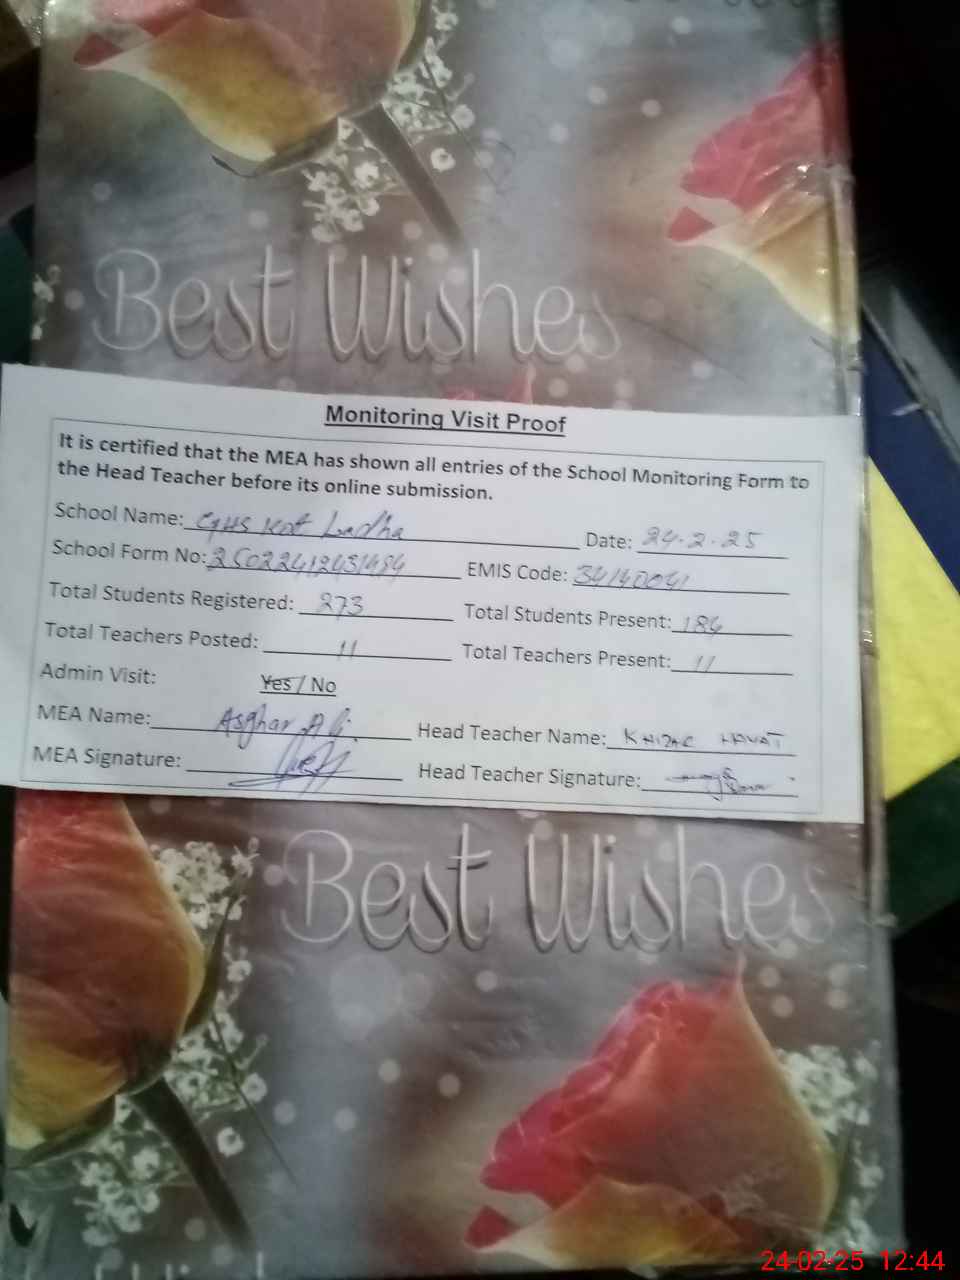 Best Wishes
Monitoring Visit Proof
It is certified that the MEA has shown all entries of the School Monitoring Form to
the Head Teacher before its online submission.
School Name: GHS Kot Ladha Date: 24-2-25
School Form No: EMIS Code: 34140041
Total Students Registered: 273 Total Students Present: 184
Total Teachers Posted: 11 Total Teachers Present: 11
Admin Visit: Yes / No
MEA Name: Asghar Ali. Head Teacher Name: HAYAT
MEA Signature: Head Teacher Signature:
Best Wishes
24-02-25 12:44